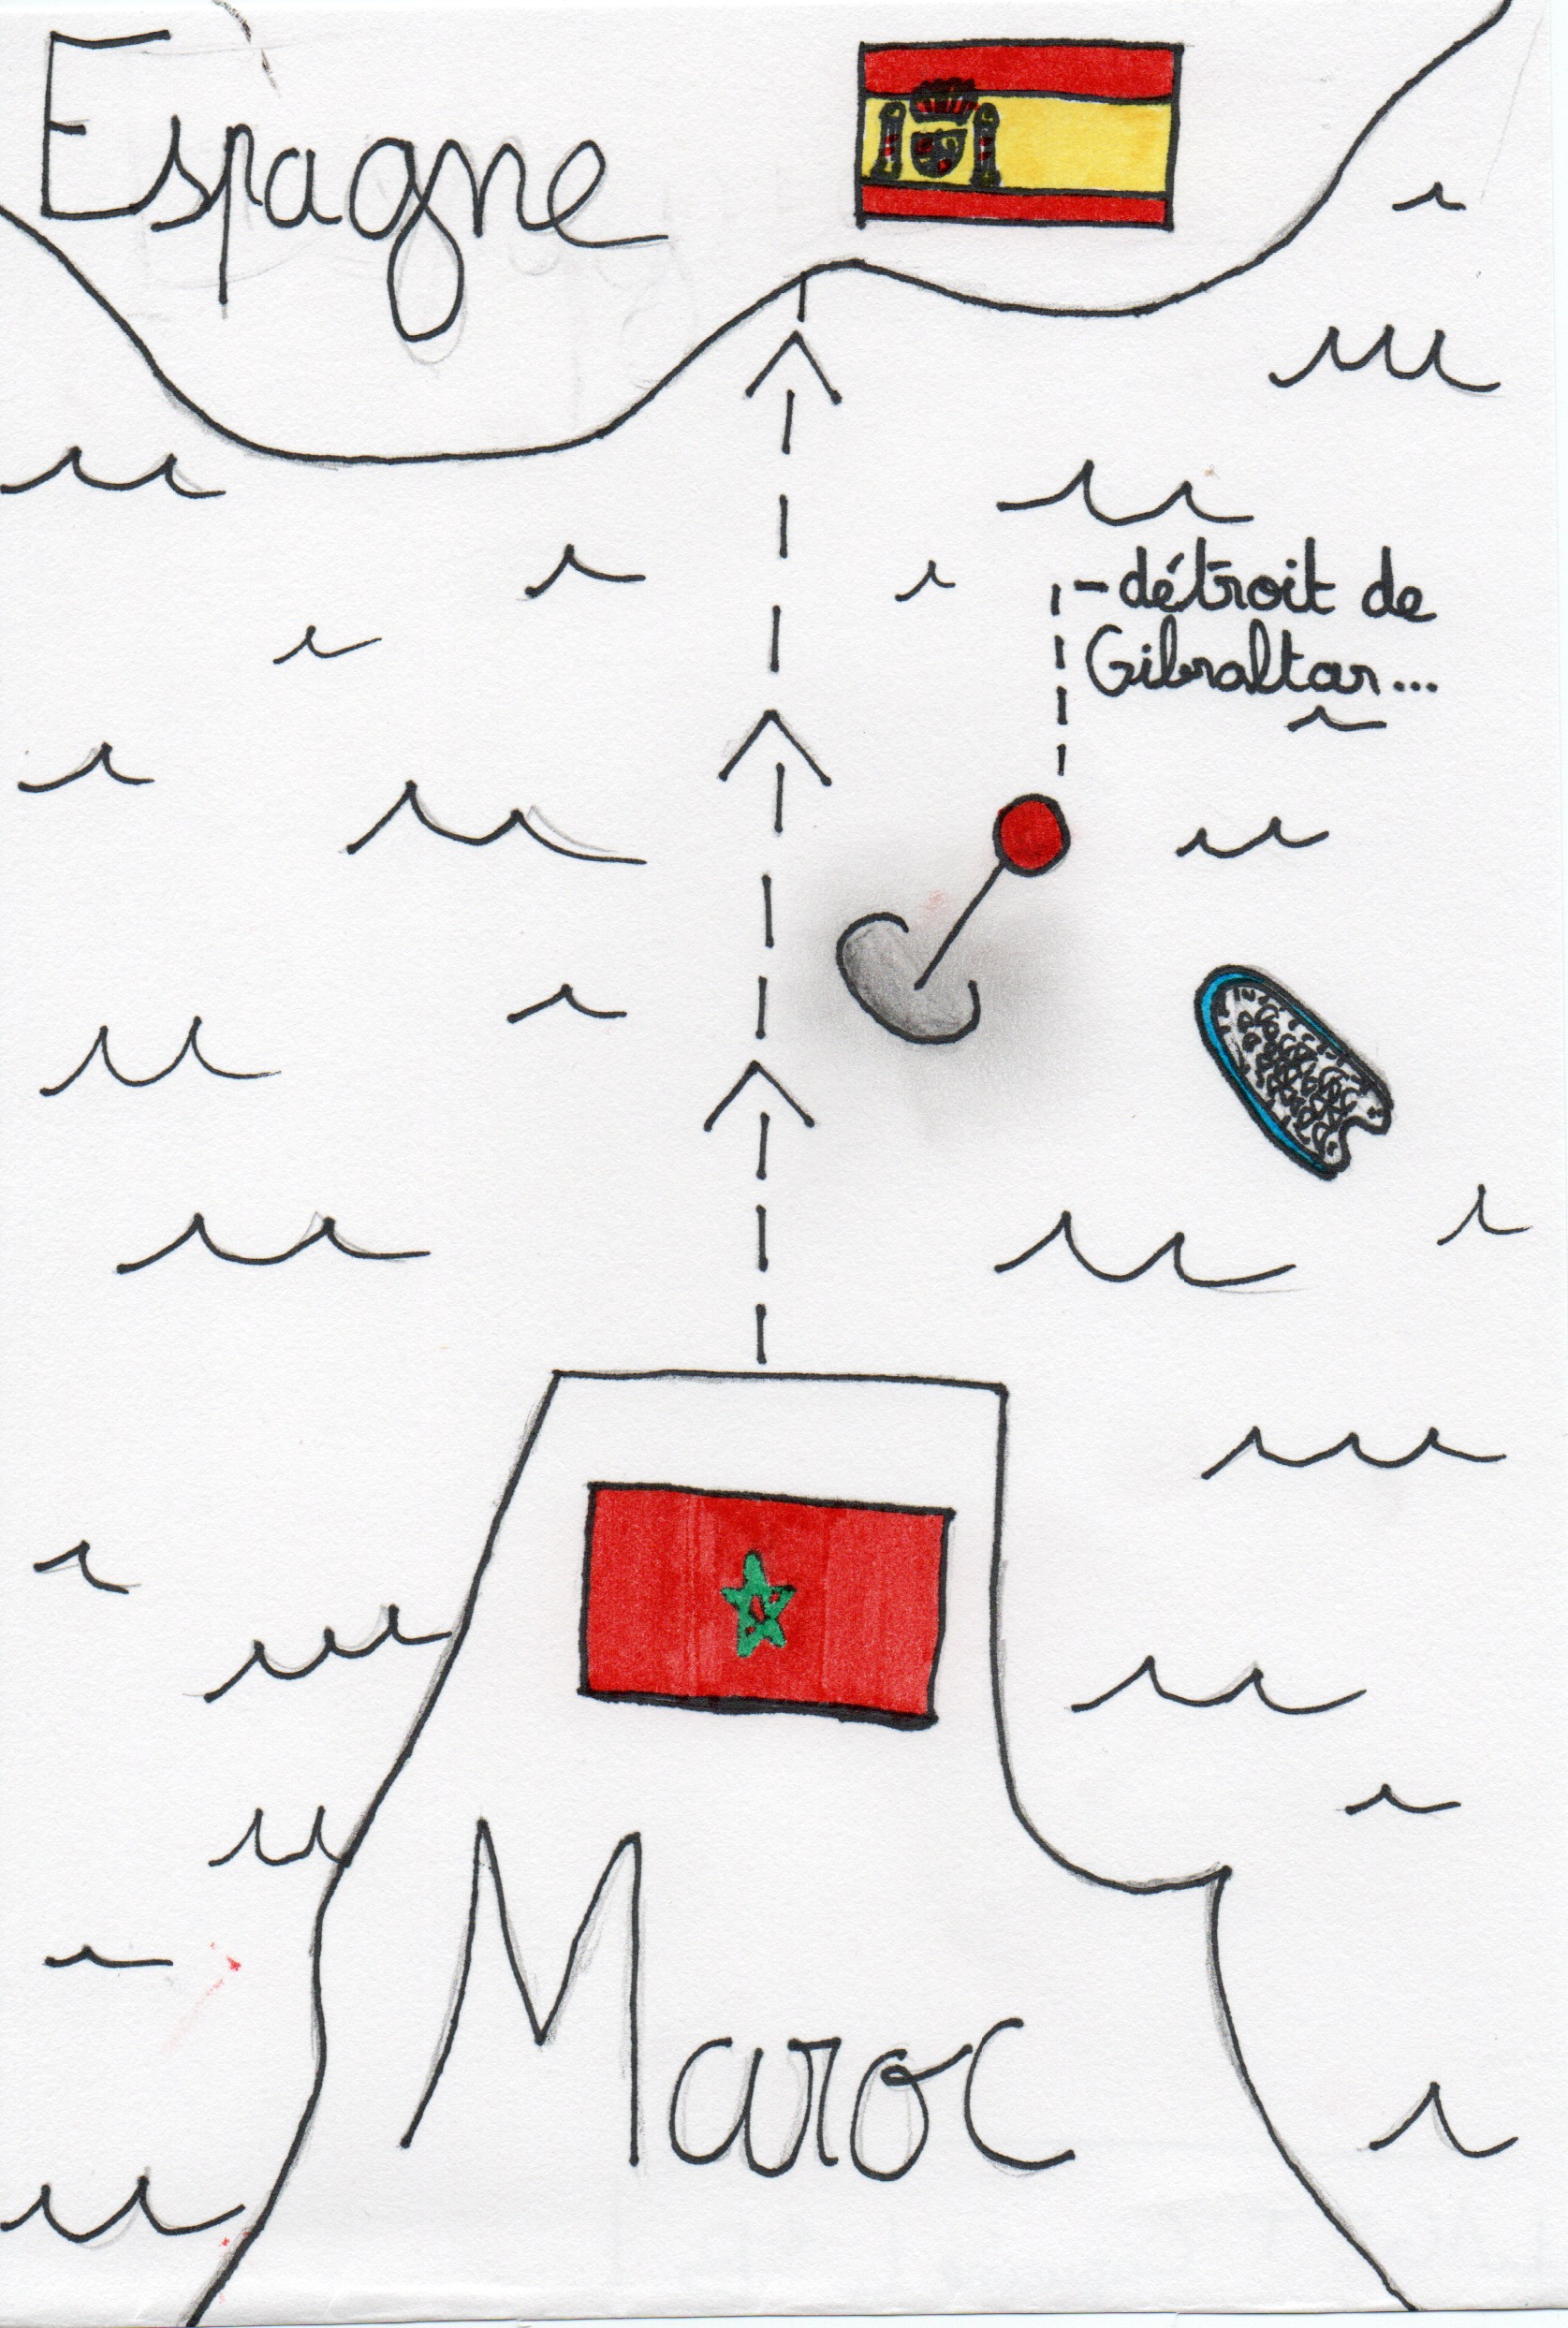 Espagne
-détroit de
Gibraltar...
Maroc